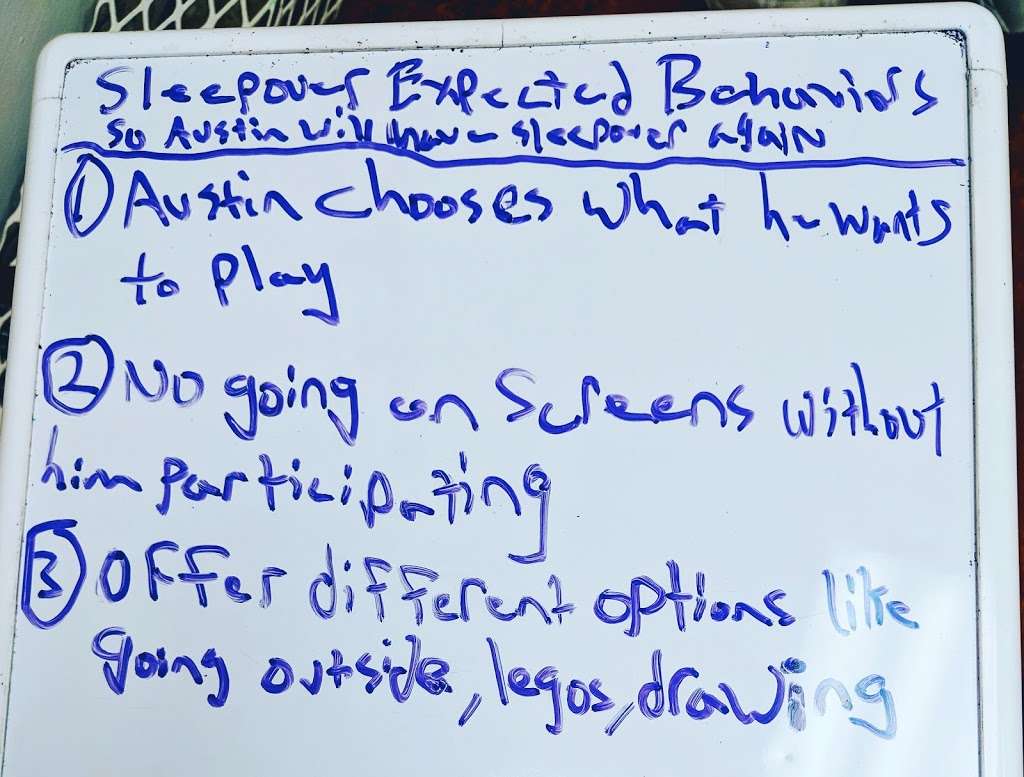 Sleepover Expected Behaviors
So Austin will have sleepover again
1) Austin chooses what he wants
to play
2) No going on Screens without
him participating
3) Offer different options like
going outside, legos, drawing